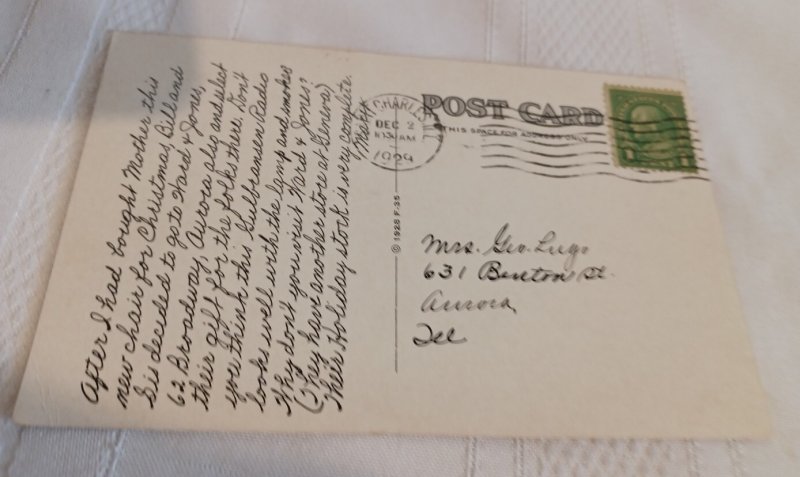 After I had bought Mother this
new chair for Christmas, Bill and
Sis decided to go to Ward & Jones,
62 Broadway, Aurora also and select
their gift for the folks there. Don't
you think this Gulbransen Radio
looks well with the lamp and smokers
Why don't you visit Ward & Jones?
(They have another store at Geneva)
Their Holiday stock is very complete.
Mary
CHARLES
ILL
DEC 2
10 30 AM
1929
POST CARD
THIS SPACE FOR ADDRESS ONLY
© 1928 F-35
Mrs. Geo. Lugo
631 Benton St.
Aurora,
Ill